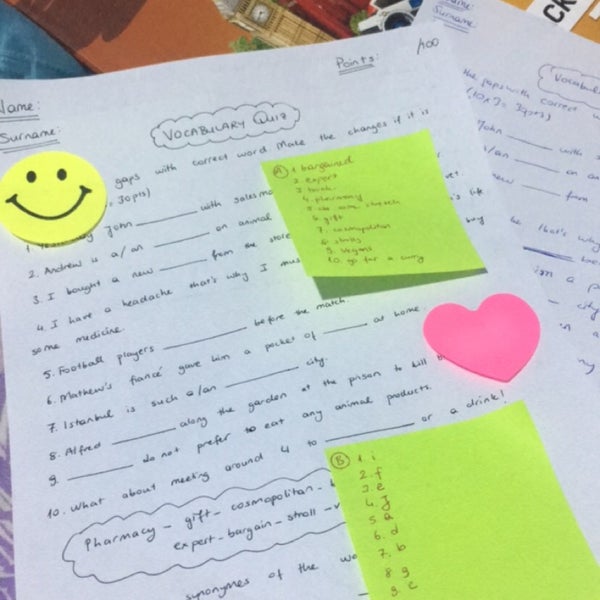 Name:
Surname:
Points: /100
VOCABULARY QUIZ
gaps with correct word Make the changes if it is
= 30pts)
1. Yesterday John ______ with salesma
2. Andrew is a/an ______ on animal
3. I bought a new ______ from the store
4. I have a headache that's why I mus
buy
some medicine.
5. Football players ______ before the match.
6. Mathew's fiancé gave him a packet of ______ at home.
7. Istanbul is such a/an ______ city.
8. Alfred ______ along the garden at the prison to kill
9. ______ do not prefer to eat any animal products.
10. What about meeting around 4 to ______ or a drink!
Pharmacy - gift - cosmopolitan -
expert - bargain - stroll - v
synonymes of the wo
A 1. bargained
2. expert
3. 
4. pharmacy
5. do some stretch
6. gift
7. cosmopolitan
8. strolls
9. vegans
10. go for a curry
B 1. i
2. f
3. e
4. j
5. a
6. d
7. b
8. g
9. c
Surname:
Vocabul
the gaps with correct w
(10x3= 30pts)
John ______ with s
a/an ______ on an
new ______ from
that's why
city